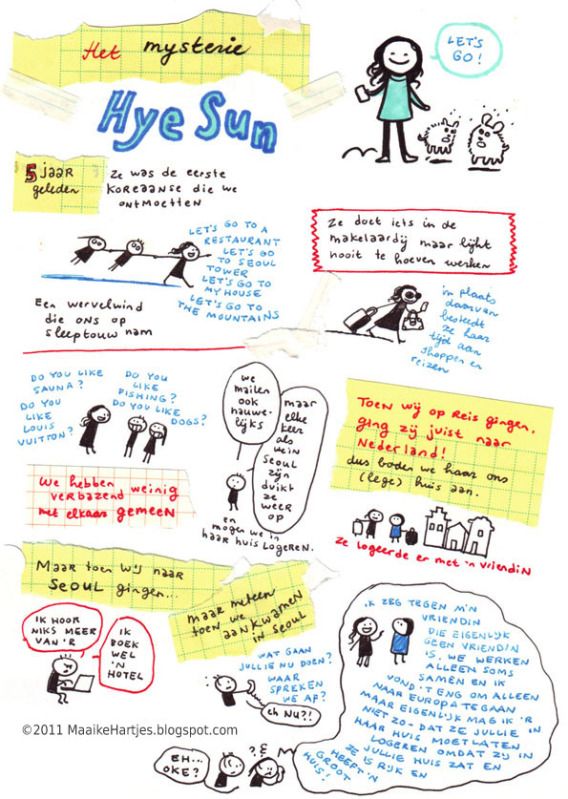 Het mysterie
Hye Sun
LET'S
GO!
5 jaar
geleden
Ze was de eerste
KOREAANSE die we
ontmoetten
LET'S GO TO A
RESTAURANT
LET'S GO
TO SEOUL
TOWER
LET'S GO TO
MY HOUSE
LET'S GO TO
THE MOUNTAINS
Een wervelwind
die ons op
sleeptouw nam
Ze doet iets in de
makelaardij maar lijkt
nooit te hoeven werken
in plaats
daarvan
besteedt
ze haar
tijd aan
shoppen en
reizen
DO YOU LIKE
SAUNA?
DO YOU
LIKE
LOUIS
VUITTON?
DO YOU
LIKE
FISHING?
DO YOU LIKE
DOGS?
We hebben
verbazend weinig
met elkaar gemeen
we
mailen
ook
nauwe-
lijks
maar
elke
keer
als
we in
Seoul
zijn
duikt
ze
weer
op
en
mogen we in
haar huis logeren.
Toen wij op reis gingen,
ging zij juist naar
Nederland!
dus boden we haar ons
(lege) huis aan.
Ze logeerde er met 'n vriendin
Maar toen wij naar
SEOUL gingen...
IK HOOR
NIKS MEER
VAN 'R
IK
BOEK
WEL
'N
HOTEL
maar meteen
toen we
aankwamen
in Seoul
WAT GAAN
JULLIE NU DOEN?
WAAR
SPREKEN
WE AF?
eh NU?!
EH...
OKE?
IK ZEG TEGEN M'N
VRIENDIN
DIE EIGENLIJK
GEEN VRIENDIN
IS. WE WERKEN
ALLEEN SOMS
SAMEN EN IK
VOND 'T ENG OM ALLEEN
NAAR EUROPA TE GAAN
MAAR EIGENLIJK MAG IK 'R
NIET ZO - DAT ZE JULLIE IN
HAAR HUIS MOET LATEN
LOGEREN OMDAT ZIJ IN
JULLIE HUIS ZAT EN
ZE IS RIJK EN
HEEFT 'N
GROOT
HUIS!
©2011 MaaikeHartjes.blogspot.com